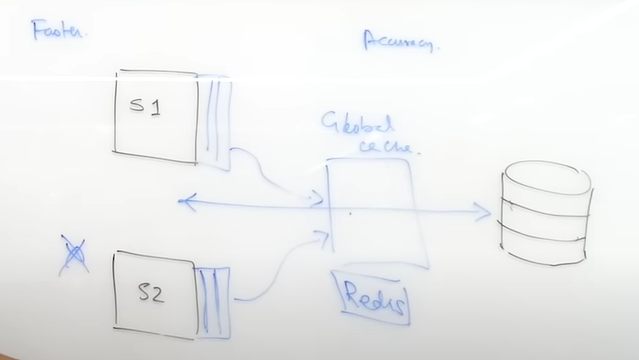 Faster.
Accuracy.
S1
Global
cache.
S2
Redis